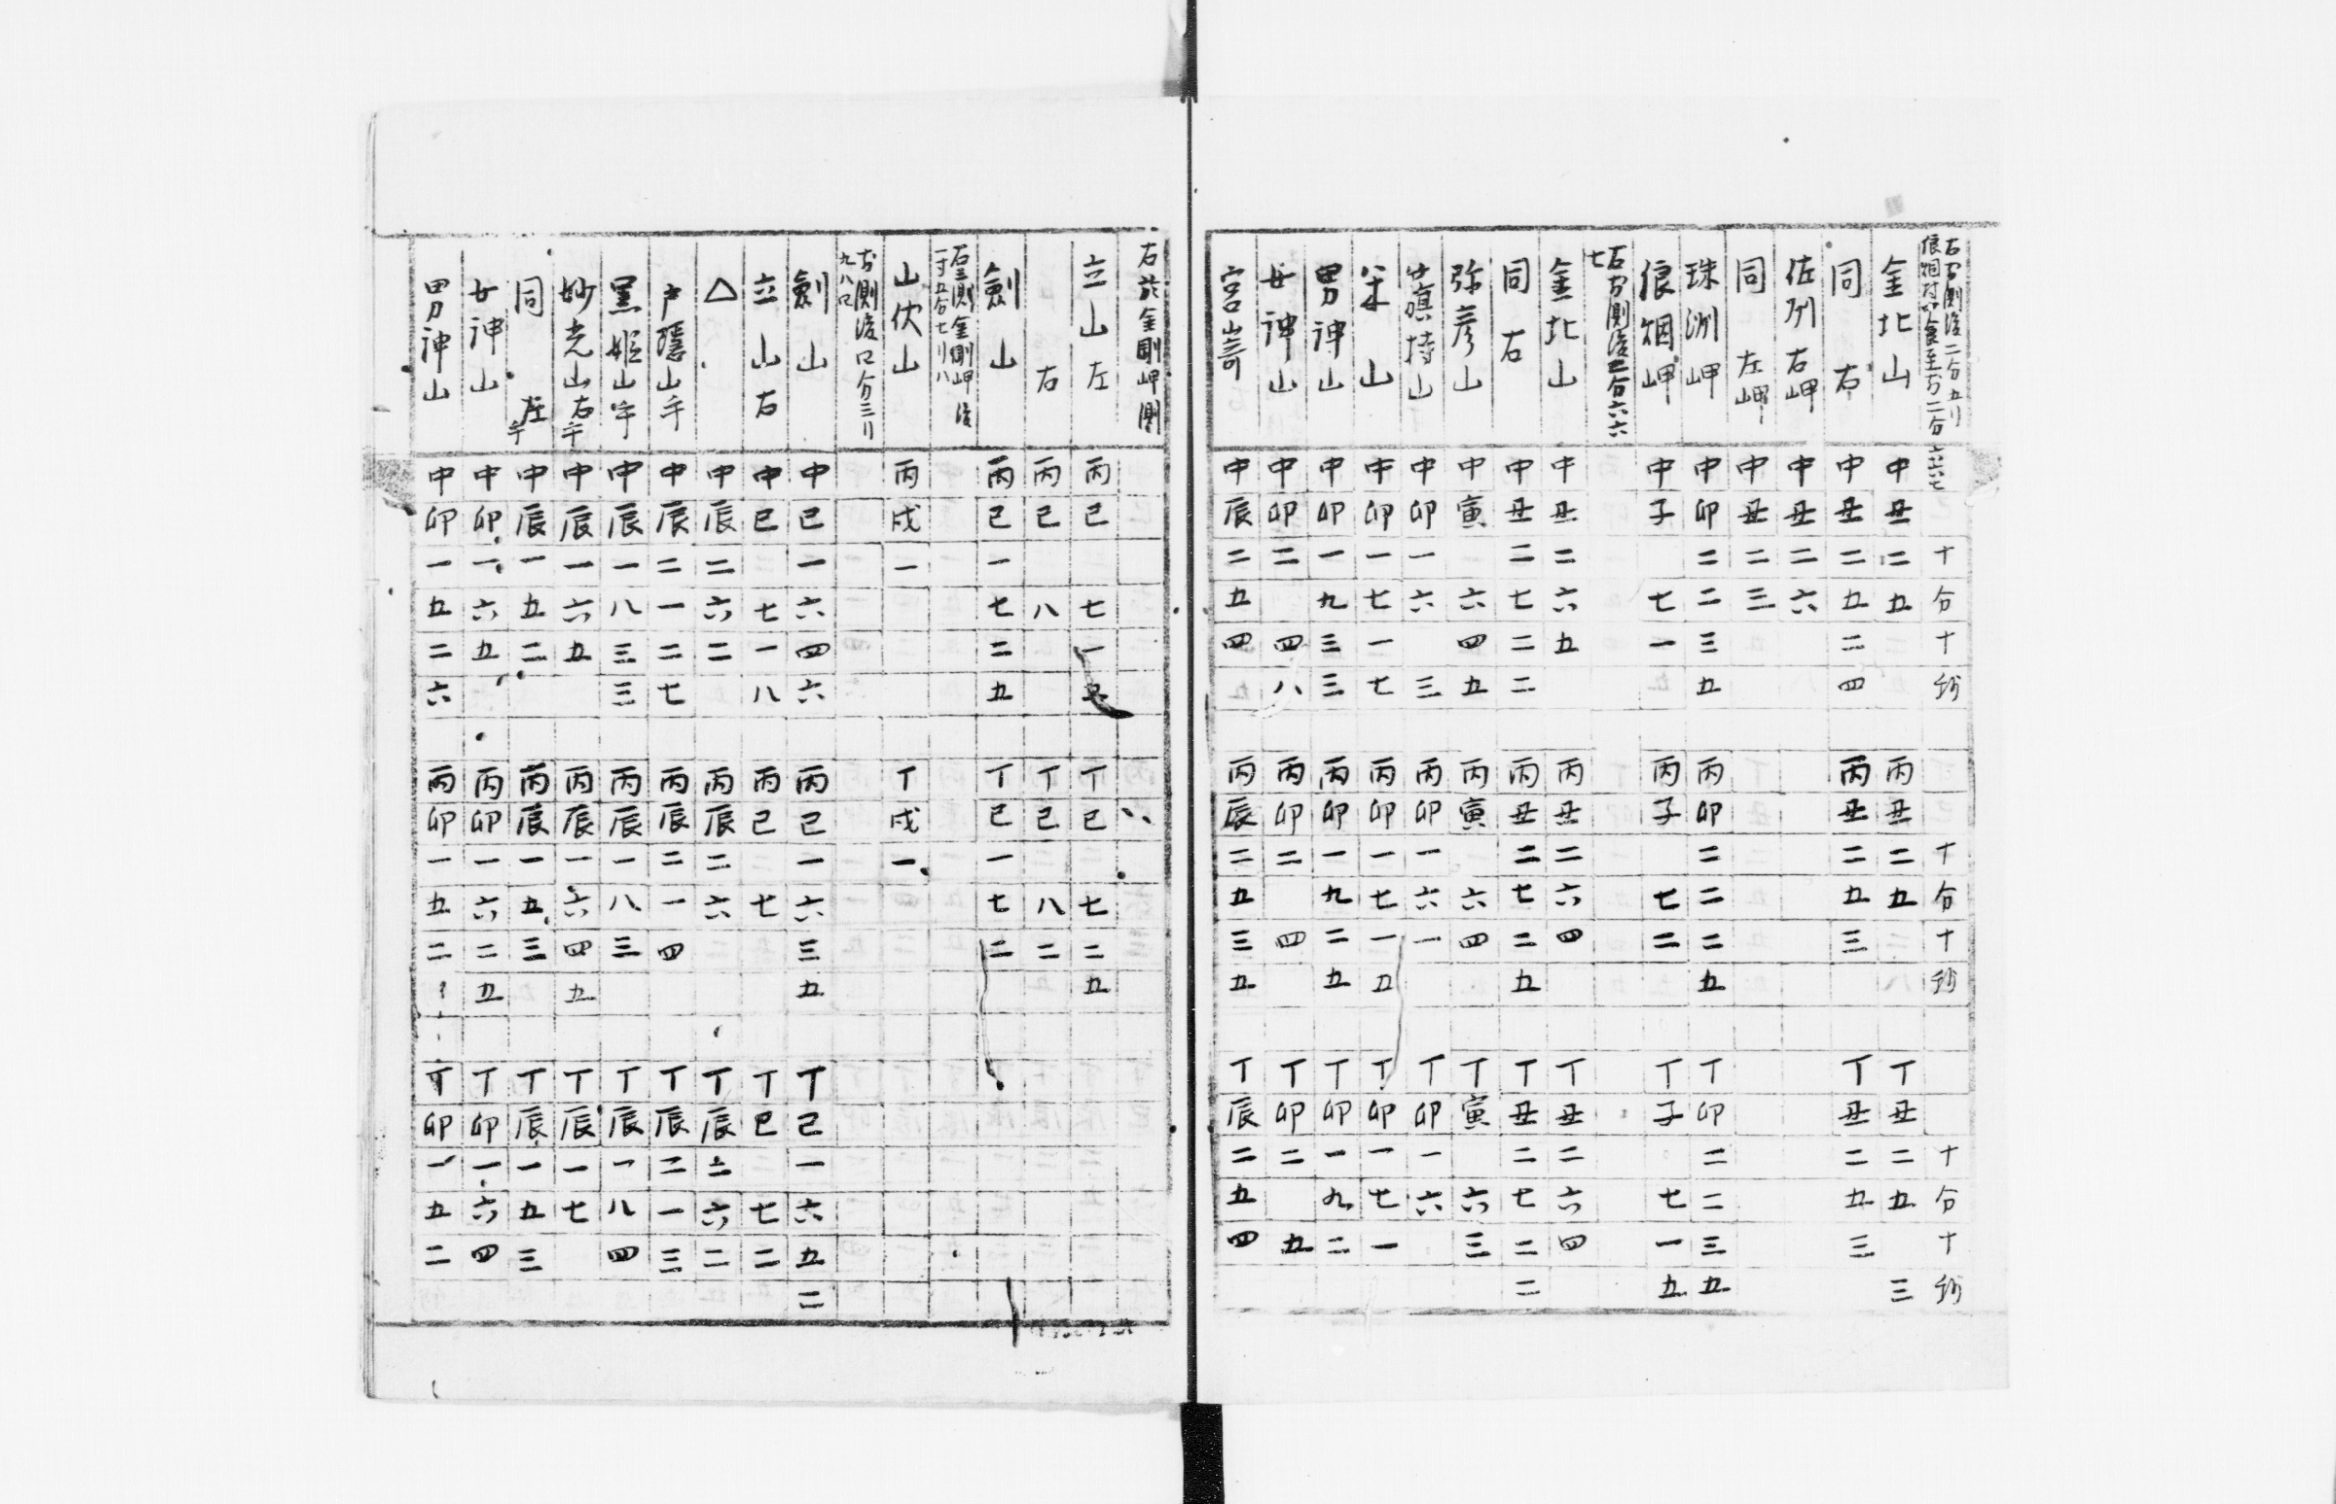 金北山 中丑二五 丙丑二五 丁丑二五 三
同 右 中丑二五二四 丙丑二五三 丁丑二五三
佐州右岬 中丑二六
同 左岬 中丑二三
珠洲岬 中卯二二三五 丙卯二二二五 丁卯二二三五
狼烟岬 中子 七一 丙子 七二 丁子 七一五
金北山 中丑二六五 丙丑二六四 丁丑二六四
同 右 中丑二七二二 丙丑二七二五 丁丑二七二二
弥彦山 中寅 六四五 丙寅 六四 丁寅 六三
旗持山 中卯一六 三 丙卯一六一 丁卯一六
米山 中卯一七一七 丙卯一七一五 丁卯一七一
男神山 中卯一九三三 丙卯一九二五 丁卯一九二
女神山 中卯二 四八 丙卯二 四 丁卯二 五
宮﨑 中辰二五四 丙辰二五三五 丁辰二五四
十分十秒 十分十秒 十分十秒
右於金剛岬測
立山左 丙巳 七一五 丁巳 七二五
右 丙巳 八 丁巳 八二
劍山 丙巳一七二五 丁巳一七二
山伏山 丙戌一 丁戌一
劍山 中巳一六四六 丙巳一六三五 丁巳一六五二
立山右 中巳 七一八 丙巳 七 丁巳 七二
△ 中辰二六二 丙辰二六 丁辰二六二
戸隱山 中辰二一二七 丙辰二一四 丁辰二一三
黒姫山 中辰一八三三 丙辰一八三 丁辰一八四
妙光山右 中辰一六五 丙辰一六四五 丁辰一七
同 左 中辰一五二 丙辰一五三 丁辰一五三
女神山 中卯一六五 丙卯一六二五 丁卯一六四
男神山 中卯一五二六 丙卯一五二 丁卯一五二